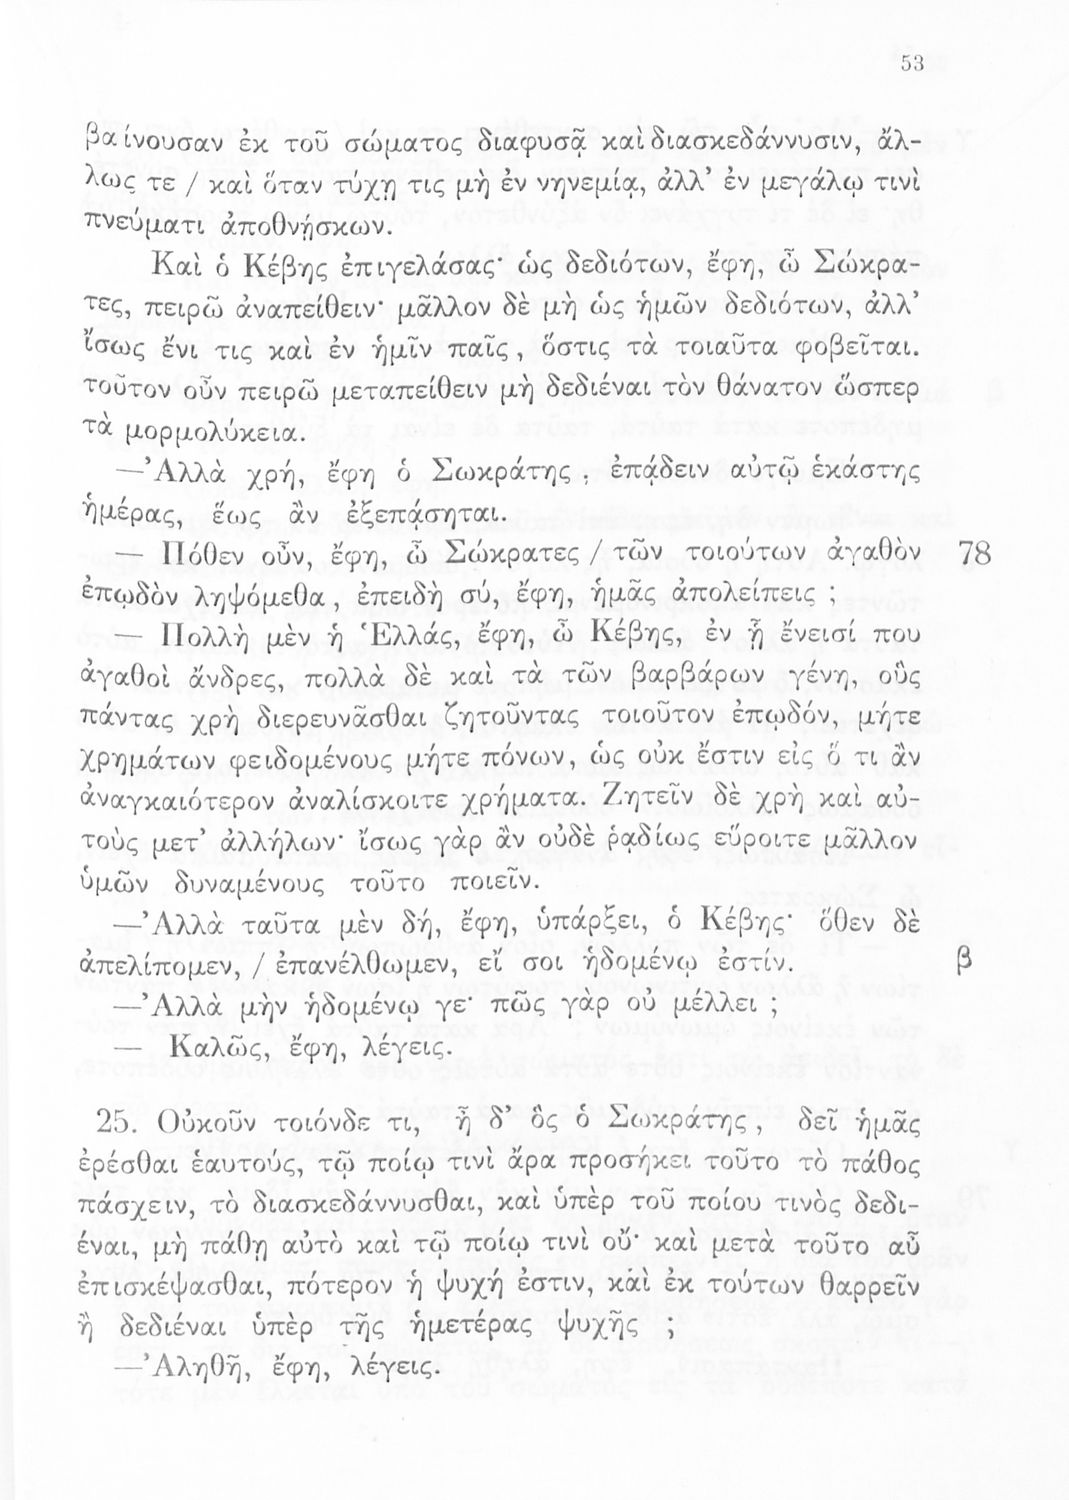 53
βαίνουσαν ἐκ τοῦ σώματος διαφυσᾷ καὶ διασκεδάννυσιν, ἄλ-
λως τε / καὶ ὅταν τύχῃ τις μὴ ἐν νηνεμίᾳ, ἀλλ’ ἐν μεγάλῳ τινὶ
πνεύματι ἀποθνῄσκων.
Καὶ ὁ Κέβης ἐπιγελάσας· ὡς δεδιότων, ἔφη, ὦ Σώκρα-
τες, πειρῶ ἀναπείθειν· μᾶλλον δὲ μὴ ὡς ἡμῶν δεδιότων, ἀλλ’
ἴσως ἔνι τις καὶ ἐν ἡμῖν παῖς, ὅστις τὰ τοιαῦτα φοβεῖται.
τοῦτον οὖν πειρῶ μεταπείθειν μὴ δεδιέναι τὸν θάνατον ὥσπερ
τὰ μορμολύκεια.
—Ἀλλὰ χρή, ἔφη ὁ Σωκράτης, ἐπᾴδειν αὐτῷ ἑκάστης
ἡμέρας, ἕως ἂν ἐξεπᾴσηται.
— Πόθεν οὖν, ἔφη, ὦ Σώκρατες / τῶν τοιούτων ἀγαθὸν 78
ἐπῳδὸν ληψόμεθα, ἐπειδὴ σύ, ἔφη, ἡμᾶς ἀπολείπεις ;
— Πολλὴ μὲν ἡ Ἑλλάς, ἔφη, ὦ Κέβης, ἐν ᾗ ἔνεισί που
ἀγαθοὶ ἄνδρες, πολλὰ δὲ καὶ τὰ τῶν βαρβάρων γένη, οὓς
πάντας χρὴ διερευνᾶσθαι ζητοῦντας τοιοῦτον ἐπῳδόν, μήτε
χρημάτων φειδομένους μήτε πόνων, ὡς οὐκ ἔστιν εἰς ὅ τι ἂν
ἀναγκαιότερον ἀναλίσκοιτε χρήματα. Ζητεῖν δὲ χρὴ καὶ αὐ-
τοὺς μετ’ ἀλλήλων· ἴσως γὰρ ἂν οὐδὲ ῥᾳδίως εὕροιτε μᾶλλον
ὑμῶν δυναμένους τοῦτο ποιεῖν.
—Ἀλλὰ ταῦτα μὲν δή, ἔφη, ὑπάρξει, ὁ Κέβης· ὅθεν δὲ
ἀπελίπομεν, / ἐπανέλθωμεν, εἴ σοι ἡδομένῳ ἐστίν. β
—Ἀλλὰ μὴν ἡδομένῳ γε· πῶς γὰρ οὐ μέλλει ;
— Καλῶς, ἔφη, λέγεις.
25. Οὐκοῦν τοιόνδε τι, ἦ δ’ ὃς ὁ Σωκράτης, δεῖ ἡμᾶς
ἐρέσθαι ἑαυτούς, τῷ ποίῳ τινὶ ἄρα προσήκει τοῦτο τὸ πάθος
πάσχειν, τὸ διασκεδάννυσθαι, καὶ ὑπὲρ τοῦ ποίου τινὸς δεδι-
έναι, μὴ πάθῃ αὐτὸ καὶ τῷ ποίῳ τινὶ οὔ· καὶ μετὰ τοῦτο αὖ
ἐπισκέψασθαι, πότερον ἡ ψυχή ἐστιν, καὶ ἐκ τούτων θαρρεῖν
ἢ δεδιέναι ὑπὲρ τῆς ἡμετέρας ψυχῆς ;
—Ἀληθῆ, ἔφη, λέγεις.